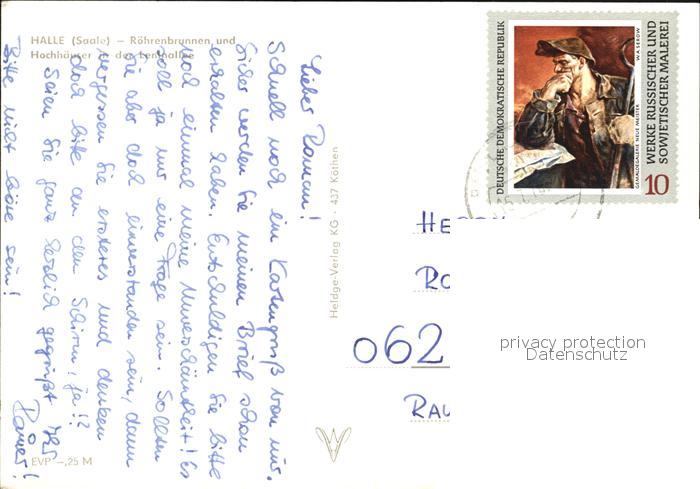 HALLE (Saale) – Röhrenbrunnen und
Hochhäuser an der Leninallee
Lieber Roman!
Schnell noch ein Kartengruß von mir.
Sicher werden Sie meinen Brief schon
erhalten haben. Entschuldigen Sie bitte
noch einmal meine Unverschämtheit! Es
soll ja nur eine Frage sein. Sollten
Sie aber doch einverstanden sein, dann
vergessen Sie ersteres und denken
doch bitte an den Schirm, ja!?
Seien Sie ganz herzlich gegrüßt Ihr
Bitte nicht böse sein!
EVP –,25 M
Heldge-Verlag KG · 437 Köthen
DEUTSCHE DEMOKRATISCHE REPUBLIK
W.A. SEROW
GEMÄLDEGALERIE NEUE MEISTER
WERKE RUSSISCHER UND
SOWJETISCHER MALEREI
10
HERRN
RO
062
RAU
privacy protection
Datenschutz